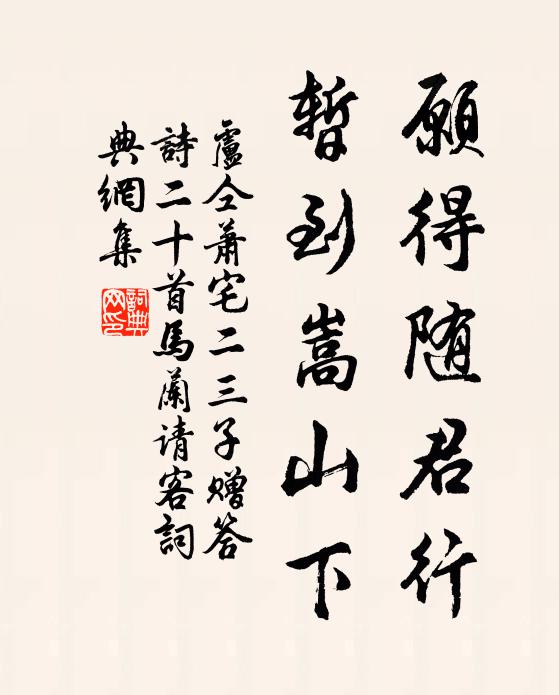 願得随君行
暫到嵩山下
盧仝蕭宅二三子赠答
詩二十首馬蘭请客詞
典網集
詞典网印